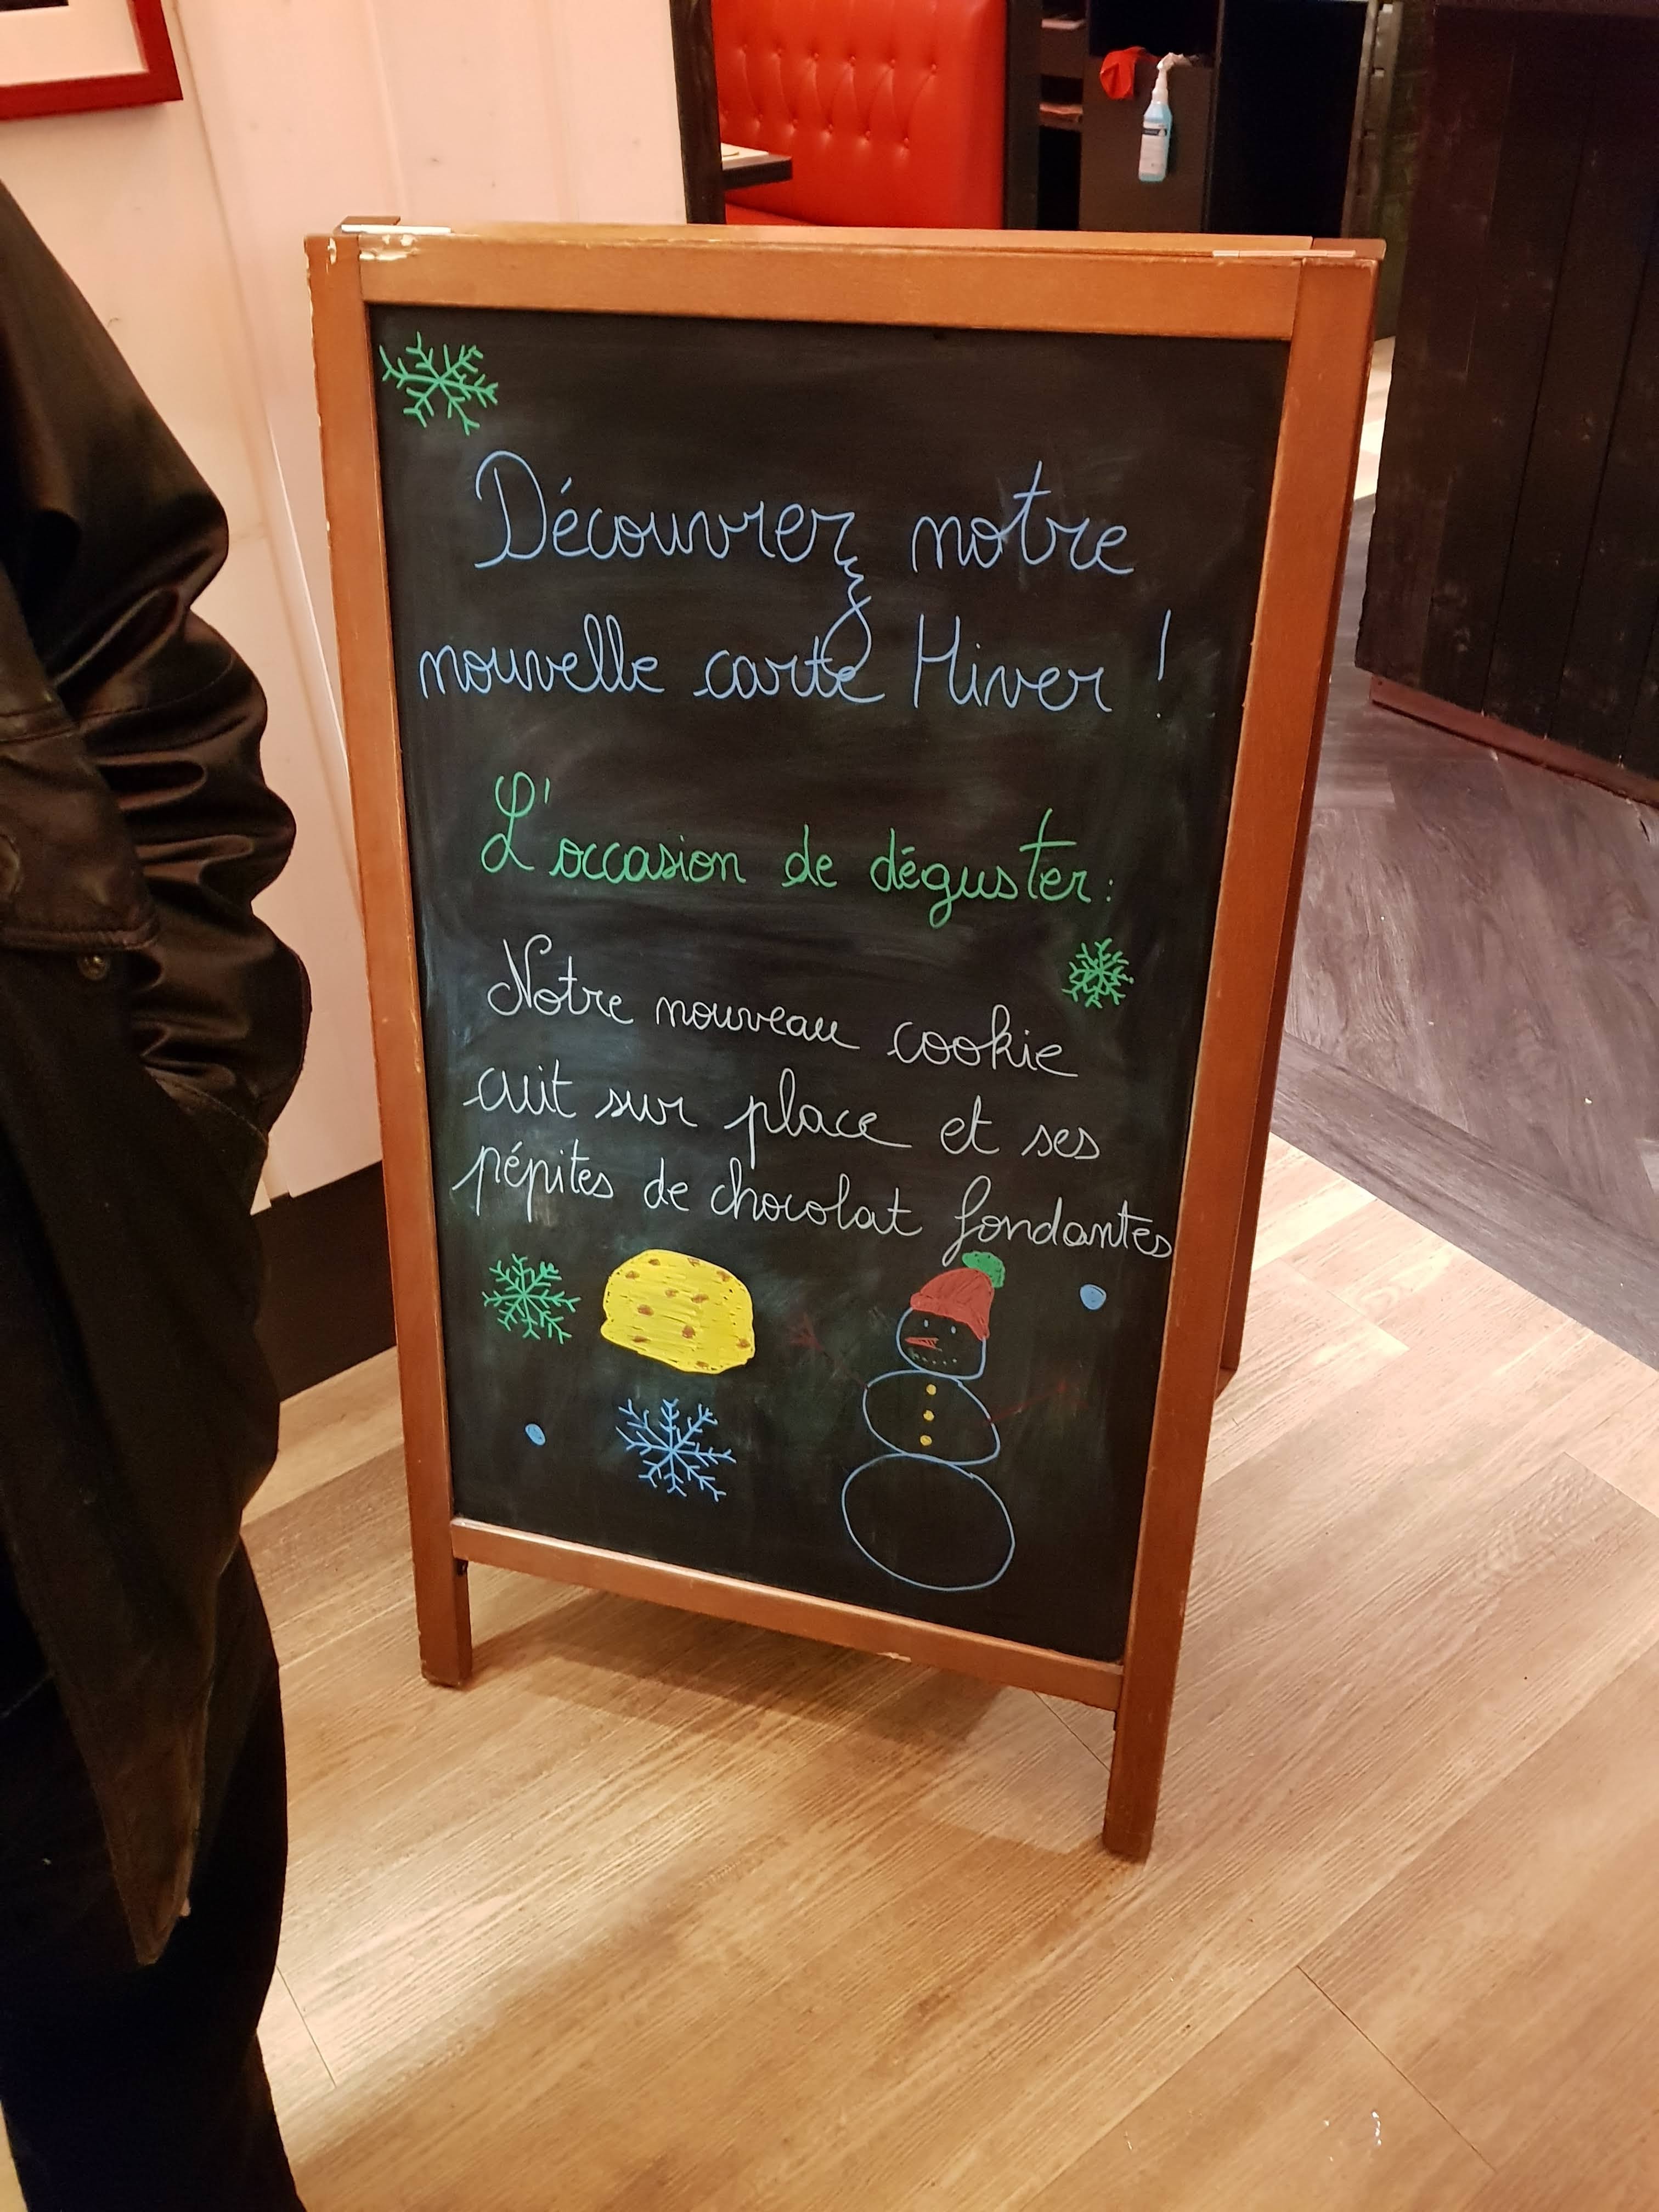 Découvrez notre
nouvelle carte Hiver !
L'occasion de déguster:
Notre nouveau cookie
cuit sur place et ses
pépites de chocolat fondantes